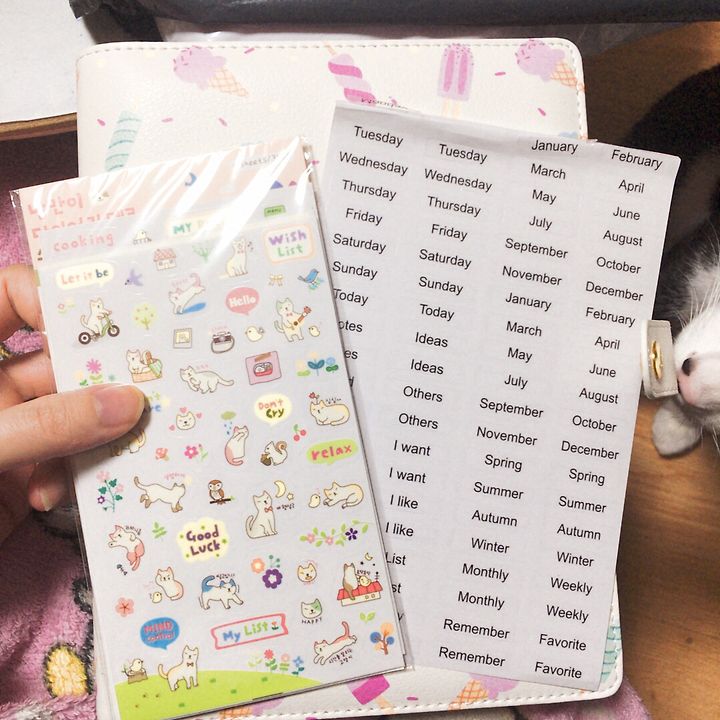 cooking
Wish
List
Let it be
Hello
Don't
Cry
relax
Good
Luck
MIND
My List
HAPPY
menu
Tuesday
Wednesday
Thursday
Friday
Saturday
Sunday
Today
Tuesday
Wednesday
Thursday
Friday
Saturday
Sunday
Today
Ideas
Ideas
Others
Others
I want
I want
I like
I like
List
January
March
May
July
September
November
January
March
May
July
September
November
Spring
Summer
Autumn
Winter
Monthly
Monthly
Remember
Remember
February
April
June
August
October
December
February
April
June
August
October
December
Spring
Summer
Autumn
Winter
Weekly
Weekly
Favorite
Favorite